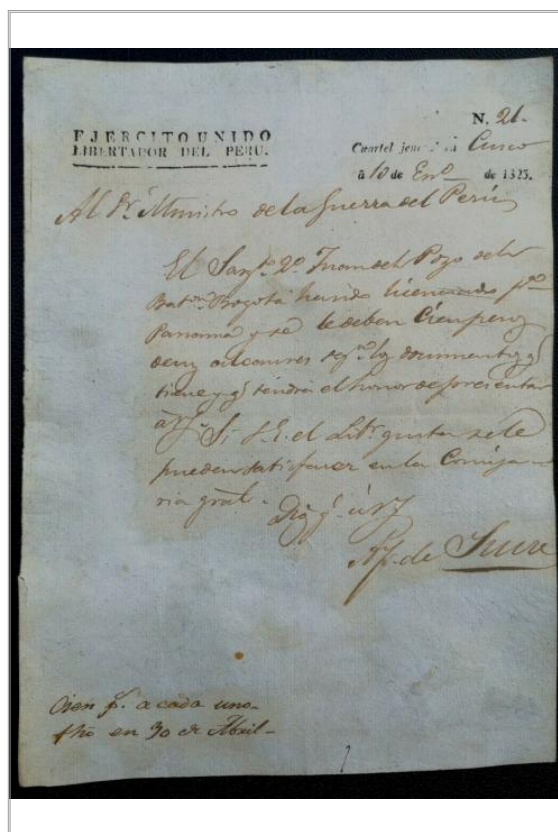 N. 21.
EJERCITO UNIDO
LIBERTADOR DEL PERU.
Cuartel jene en Cusco
à 10 de En.º de 1825.
Al Sr. Ministro de la Guerra del Perú
El Sarg.to 2º Juan del Pozo del
Bat.on Bogotá ha sido licenciado p.a
Panamá y se le deben Cien pesos
de sus alcances seg.n los documentos q.e
tiene y q.e tendrá el honor de presentar
à VS. Si S.E. el Lib.r gusta se le
pueden satisfacer en la Comisa-
ria gral.
Dios g.e à VS
A. J. de Sucre
Cien p.s a cada uno.
fho en 30 de Abril-